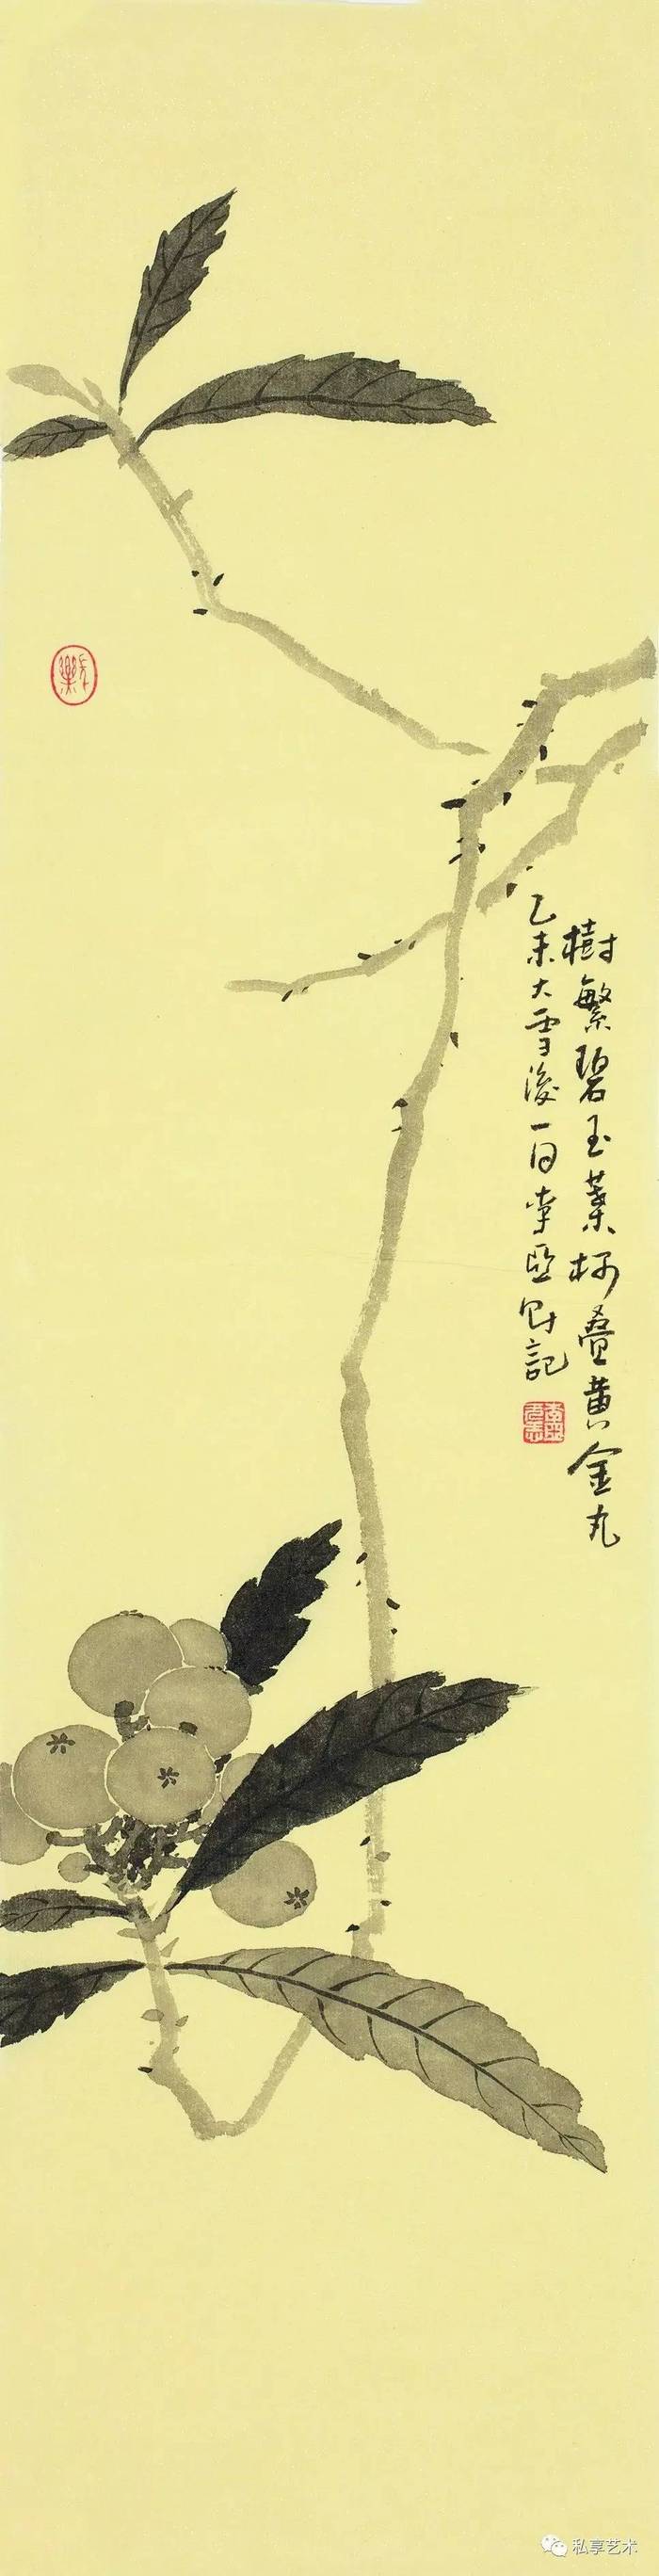 樹繁碧玉葉柯叠黄金丸
乙未大雪後一日李亞財記
私享艺术